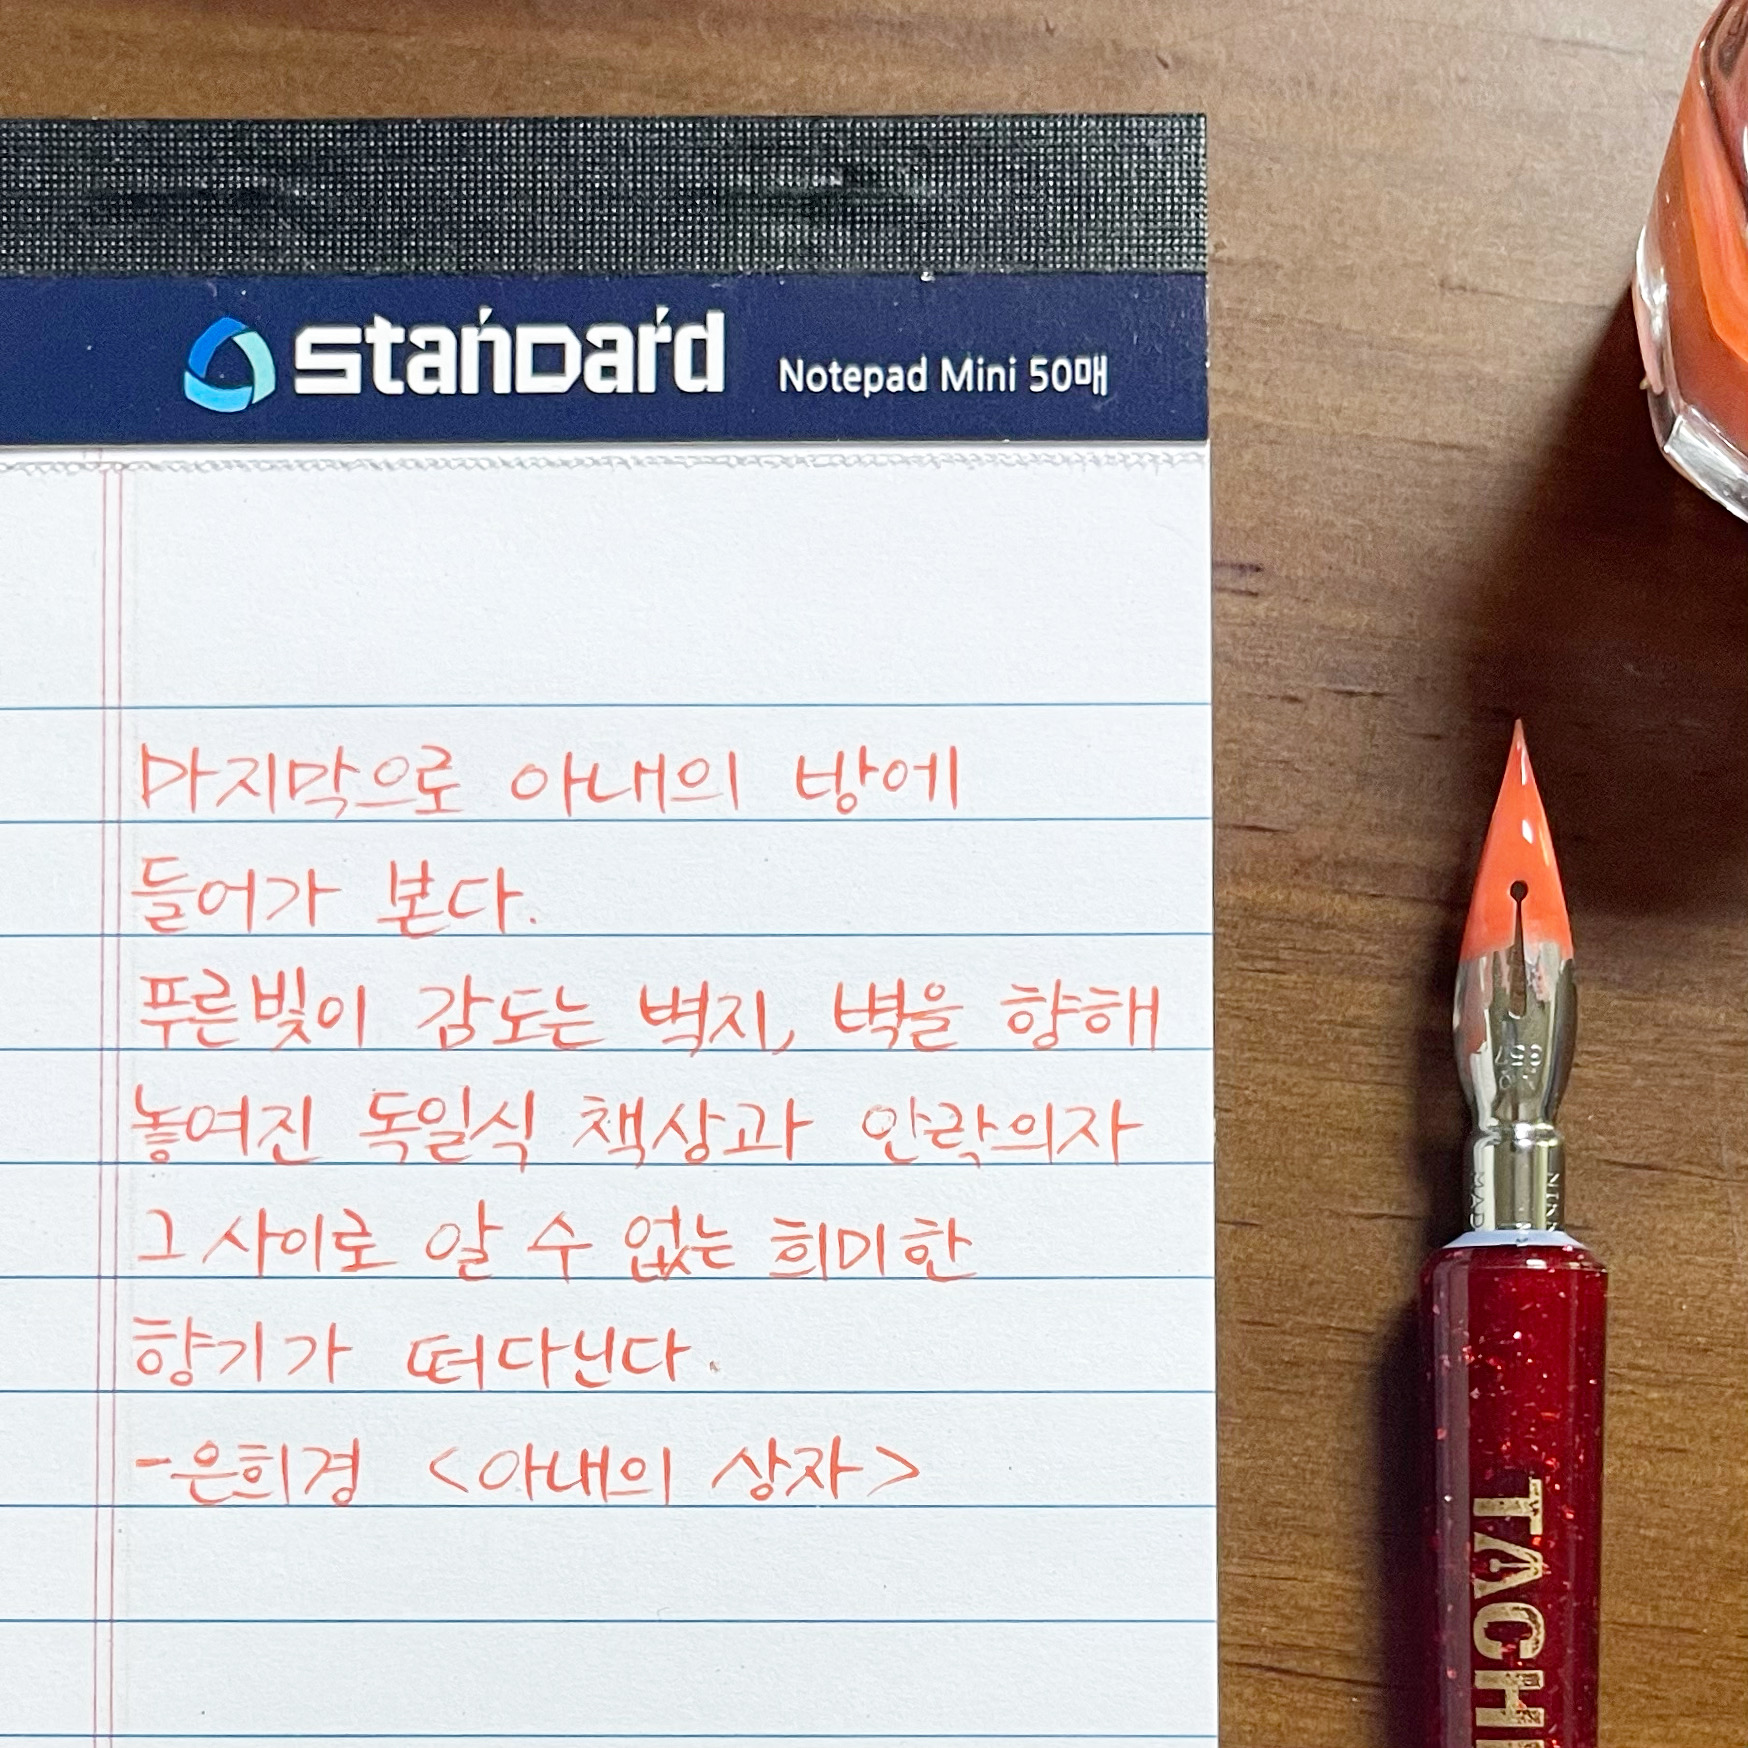 standard Notepad Mini 50매
마지막으로 아내의 방에
들어가 본다.
푸른빛이 감도는 벽지, 벽을 향해
놓여진 독일식 책상과 안락의자
그 사이로 알 수 없는 희미한
향기가 떠다닌다.
-은희경 <아내의 상자>
TACHI